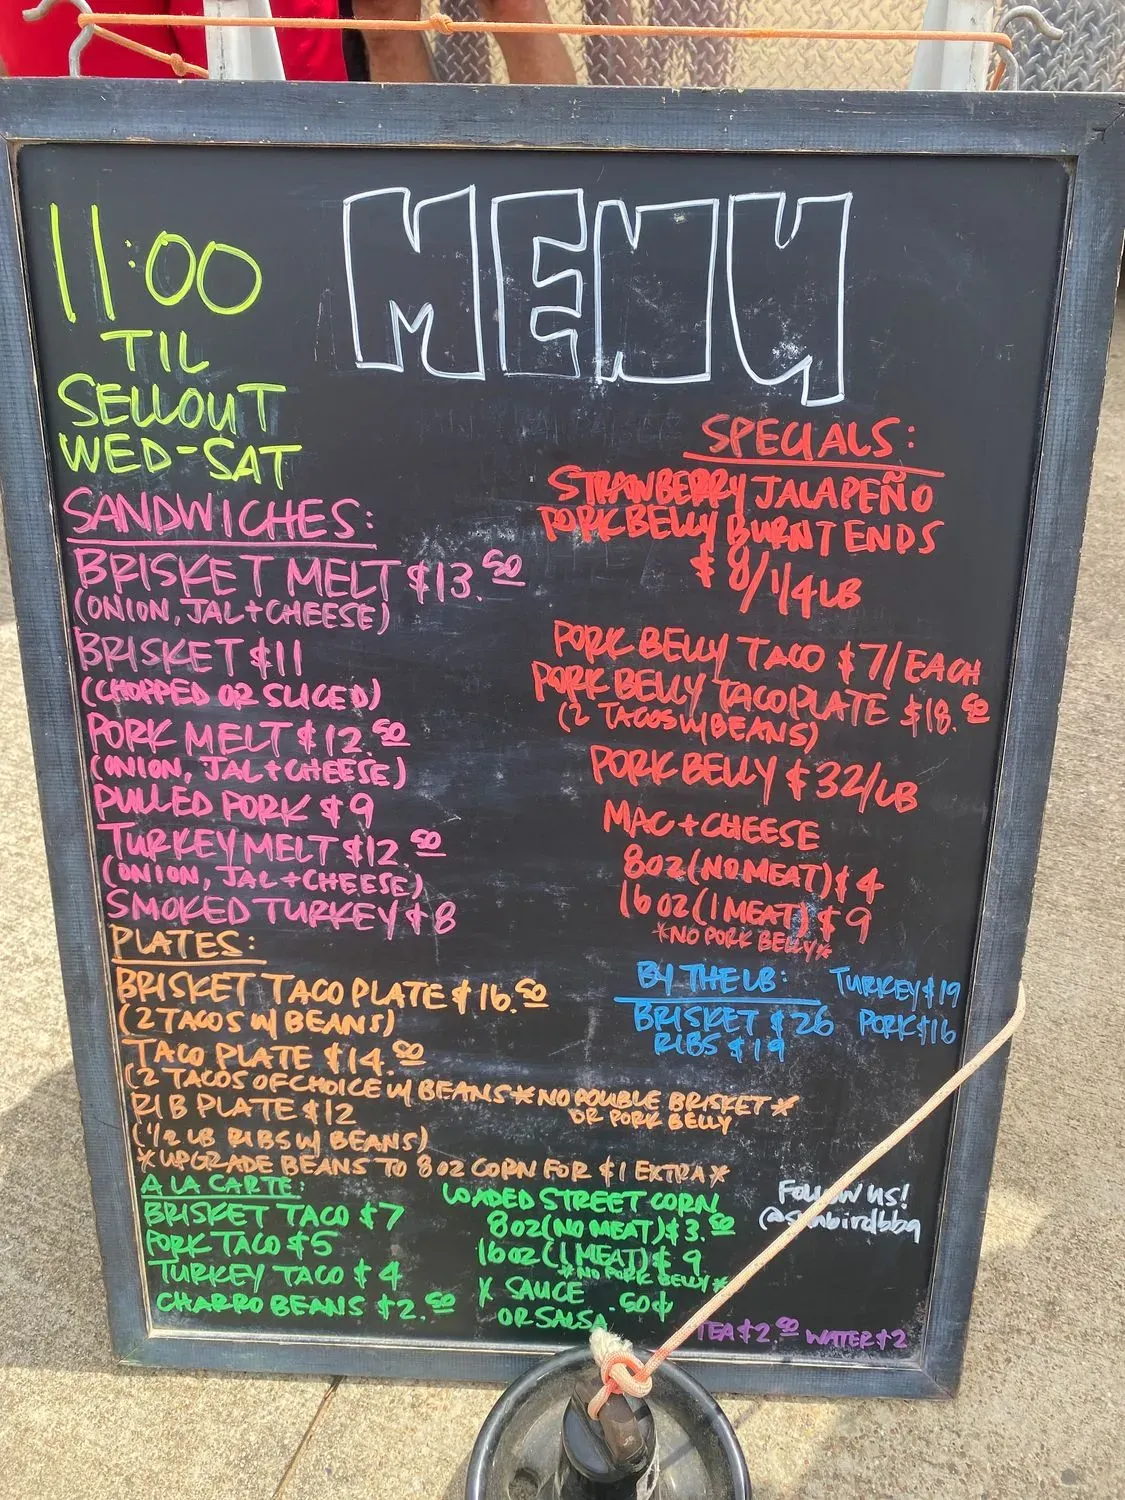 MENU
11:00
TIL
SELLOUT
WED-SAT
SANDWICHES:
BRISKET MELT $13.50
(ONION, JAL + CHEESE)
BRISKET $11
(CHOPPED OR SLICED)
PORK MELT $12.50
(ONION, JAL + CHEESE)
PULLED PORK $9
TURKEY MELT $12.50
(ONION, JAL + CHEESE)
SMOKED TURKEY $8
PLATES:
BRISKET TACO PLATE $16.50
(2 TACOS W/ BEANS)
TACO PLATE $14.50
(2 TACOS OF CHOICE W/ BEANS *NO DOUBLE BRISKET*
OR PORK BELLY
RIB PLATE $12
(1/2 LB RIBS W/ BEANS)
*UPGRADE BEANS TO 8 OZ CORN FOR $1 EXTRA*
A LA CARTE:
BRISKET TACO $7
PORK TACO $5
TURKEY TACO $4
CHARRO BEANS $2.50
LOADED STREET CORN
8 OZ (NO MEAT) $3.50
16 OZ (1 MEAT) $9
*NO PORK BELLY*
X SAUCE .50¢
OR SALSA
SPECIALS:
STRAWBERRY JALAPEÑO
PORK BELLY BURNT ENDS
$8/1/4 LB
PORK BELLY TACO $7/EACH
PORK BELLY TACO PLATE $18.50
(2 TACOS W/ BEANS)
PORK BELLY $32/LB
MAC + CHEESE
8 OZ (NO MEAT) $4
16 OZ (1 MEAT) $9
*NO PORK BELLY*
BY THE LB:
TURKEY $19
BRISKET $26 PORK $16
RIBS $19
FOLLOW US!
@sunbirdbbq
TEA $2.50 WATER $2